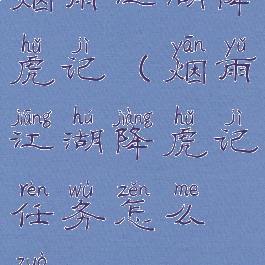 烟雨江湖降
hǔ jì yān yǔ
虎记(烟雨
jiāng hú jiàng hǔ jì
江湖降虎记
rèn wù zěn me
任务怎么
zuò